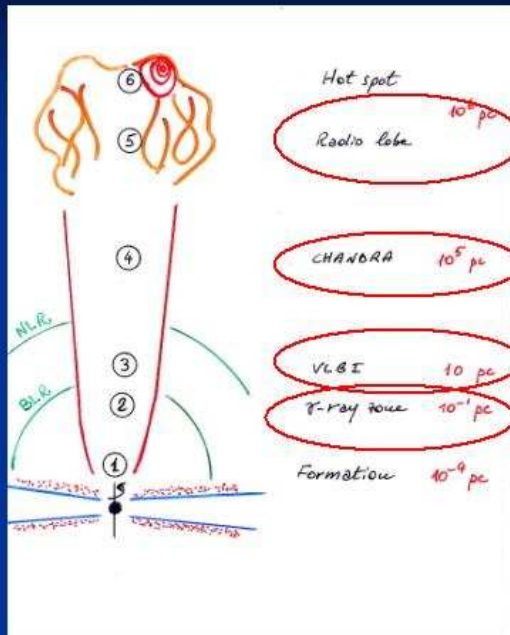 ⑥
⑤
④
③
②
①
NLR
BLR
Hot spot
10⁶ pc
Radio lobe
CHANDRA 10⁵ pc
VLBI 10 pc
γ-ray zone 10⁻¹ pc
Formation 10⁻⁴ pc